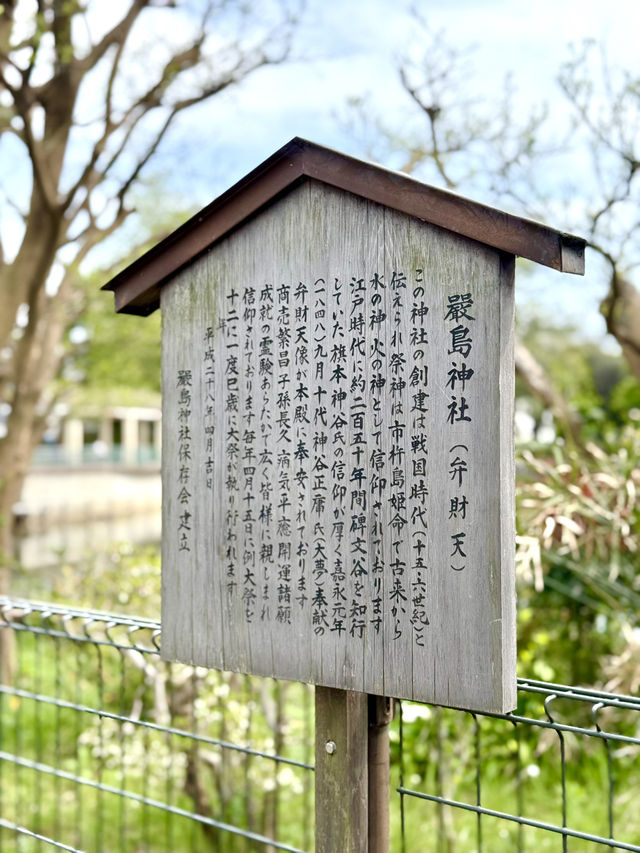 嚴島神社（弁財天）
この神社の創建は戦国時代（十五・六世紀）と
伝えられ祭神は市杵島姫命で古来から
水の神火の神として信仰されております
江戸時代に約二百五十年間碑文谷を知行
していた旗本神谷氏の信仰が厚く嘉永元年
（一八四八）九月十代神谷正庸氏（大夢）奉献の
弁財天像が本殿に奉安されております
商売繁昌子孫長久病気平癒開運諸願
成就の霊験あらたかで広く皆様に親しまれ
信仰されております毎年四月十五日に例大祭を
十二年に一度巳歳に大祭が執り行われます
平成二十八年四月吉日
嚴島神社保存会建立